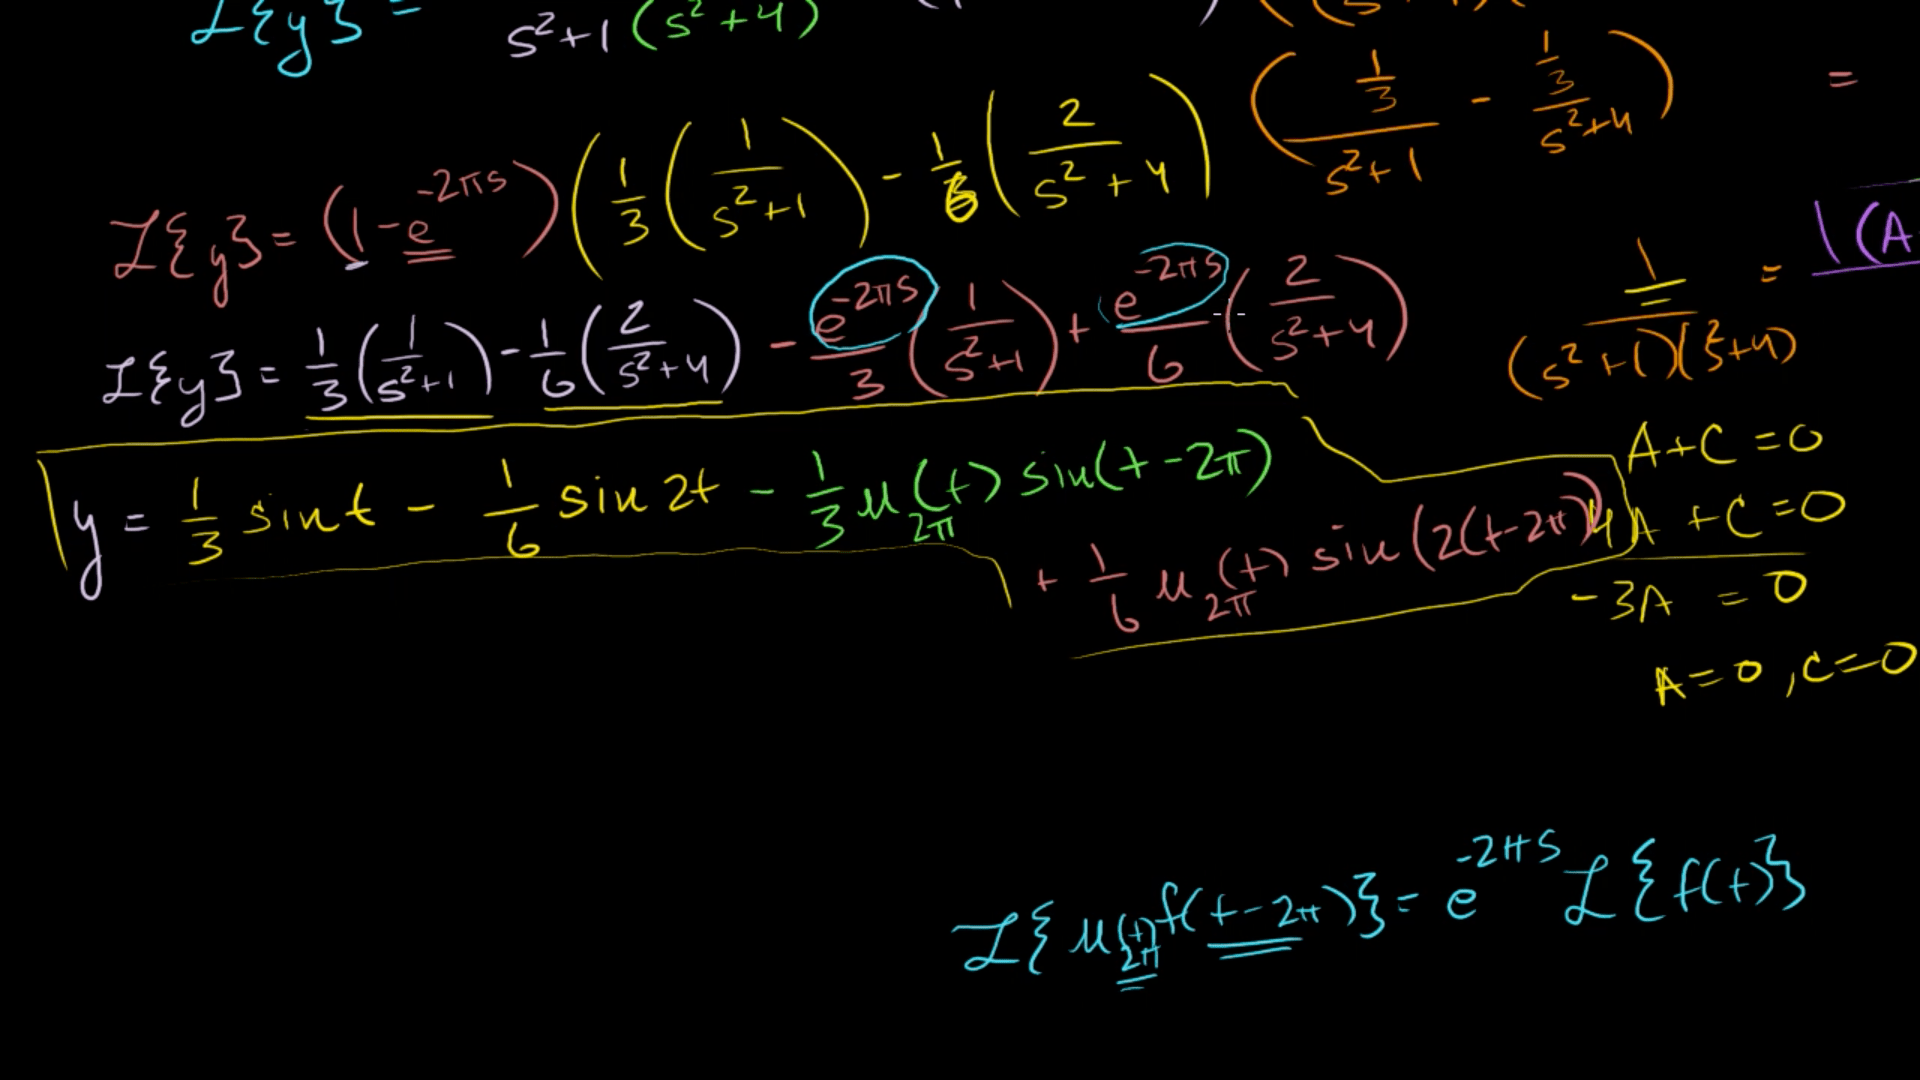 ℒ{y} =
s²+1 (s²+4)
(1/3 / s²+1 - 1/3 / s²+4) =
ℒ{y} = (1 - e^(-2πs)) (1/3 (1/(s²+1)) - 1/6 (2/(s²+4))
1/((s²+1)(s²+4)) = 1(A
ℒ{y} = 1/3 (1/(s²+1)) - 1/6 (2/(s²+4)) - e^(-2πs)/3 (1/(s²+1)) + e^(-2πs)/6 (2/(s²+4))
A+C=0
y = 1/3 sin t - 1/6 sin 2t - 1/3 u_2π(t) sin(t-2π)
+ 1/6 u_2π(t) sin(2(t-2π))
4A+C=0
-3A = 0
A=0, C=0
ℒ{u_2π(t) f(t-2π)} = e^(-2πs) ℒ{f(t)}